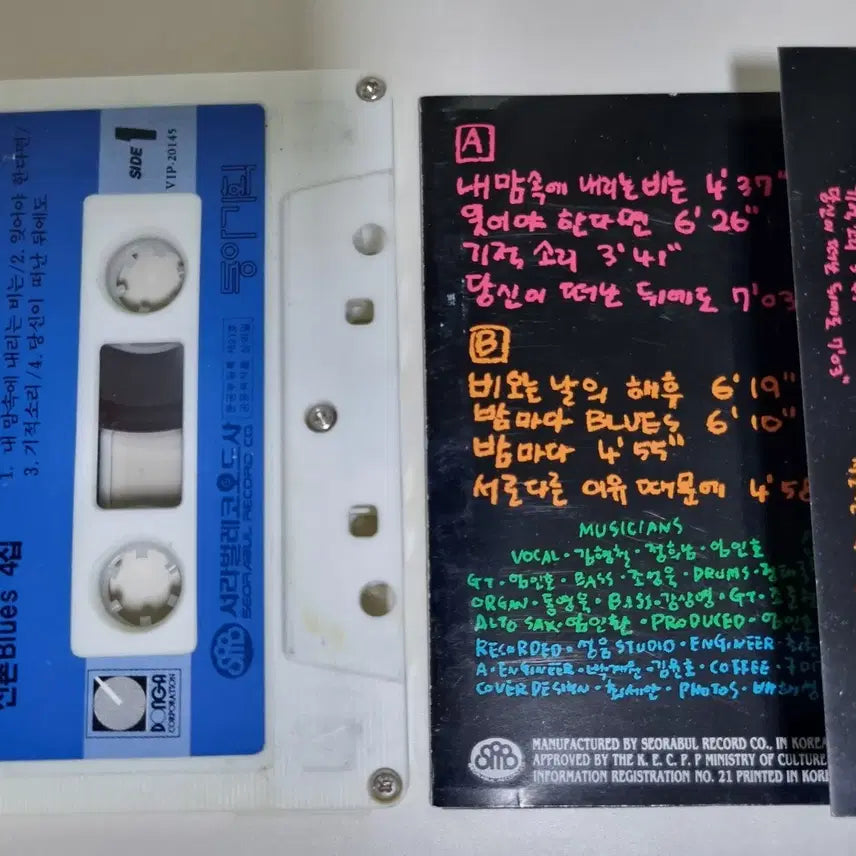 1. 내 맘속에 내리는 비는/2. 잊어야 한다면/
3. 기적소리/4. 당신이 떠난 뒤에도
신촌Blues 4집
SIDE 1
VIP-20145
동아기획
서라벌레코오드사
SEORABUL RECORD CO.
DONGA
CORPORATION
A
내 맘속에 내리는 비는 4'37"
잊어야 한다면 6'26"
기적 소리 3'41"
당신이 떠난 뒤에도 7'03
B
비오는 날의 해후 6'19"
밤마다 BLUES 6'10"
밤마다 4'55"
서로다른 이유 때문에 4'58
MUSICIANS
VOCAL·김형철·정희남·엄인호
GT·엄인호·BASS· DRUMS·
ORGAN· BASS·김상영·GT·
ALTO SAX· PRODUCED·엄인호
RECORDED·성음 STUDIO·ENGINEER·
A·ENGINEER· COFFEE·
COVER DESIGN·최세안·PHOTOS·
MANUFACTURED BY SEORABUL RECORD CO., IN KOREA
APPROVED BY THE K. E. C. P. P MINISTRY OF CULTURE
INFORMATION REGISTRATION NO. 21 PRINTED IN KOR